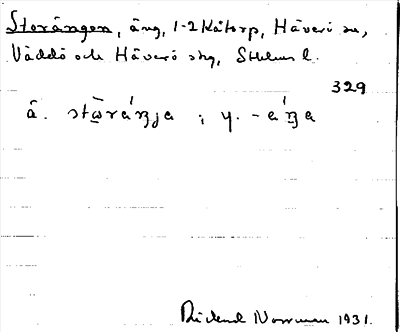 Storängen, äng, 1-2 Kåtorp, Häverö sn,
Väddö och Häverö skg, Sthlms l.
329
ä. stὼráŋja ; y. -áŋa
Rickard Norrman 1931.